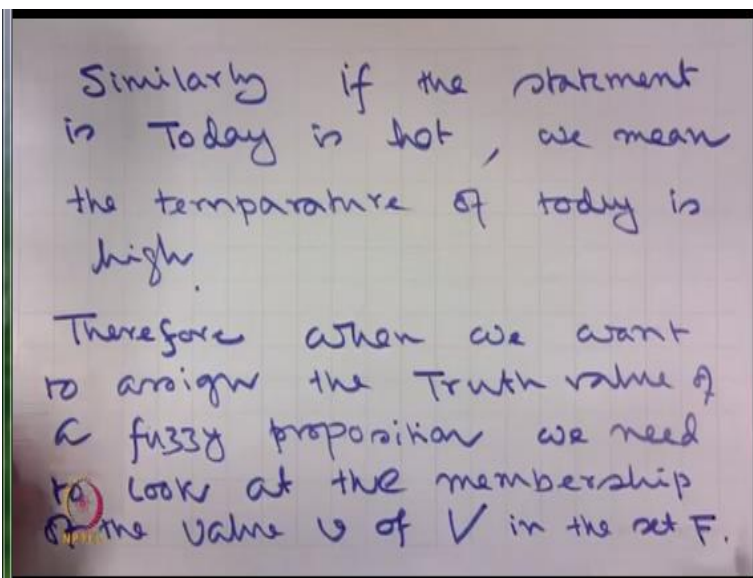 Similarly if the statement
is Today is hot, we mean
the temparature of today is
high.
Therefore when we want
to assign the Truth value of
a fuzzy proposition we need
to look at the membership
of the value v of V in the set F.